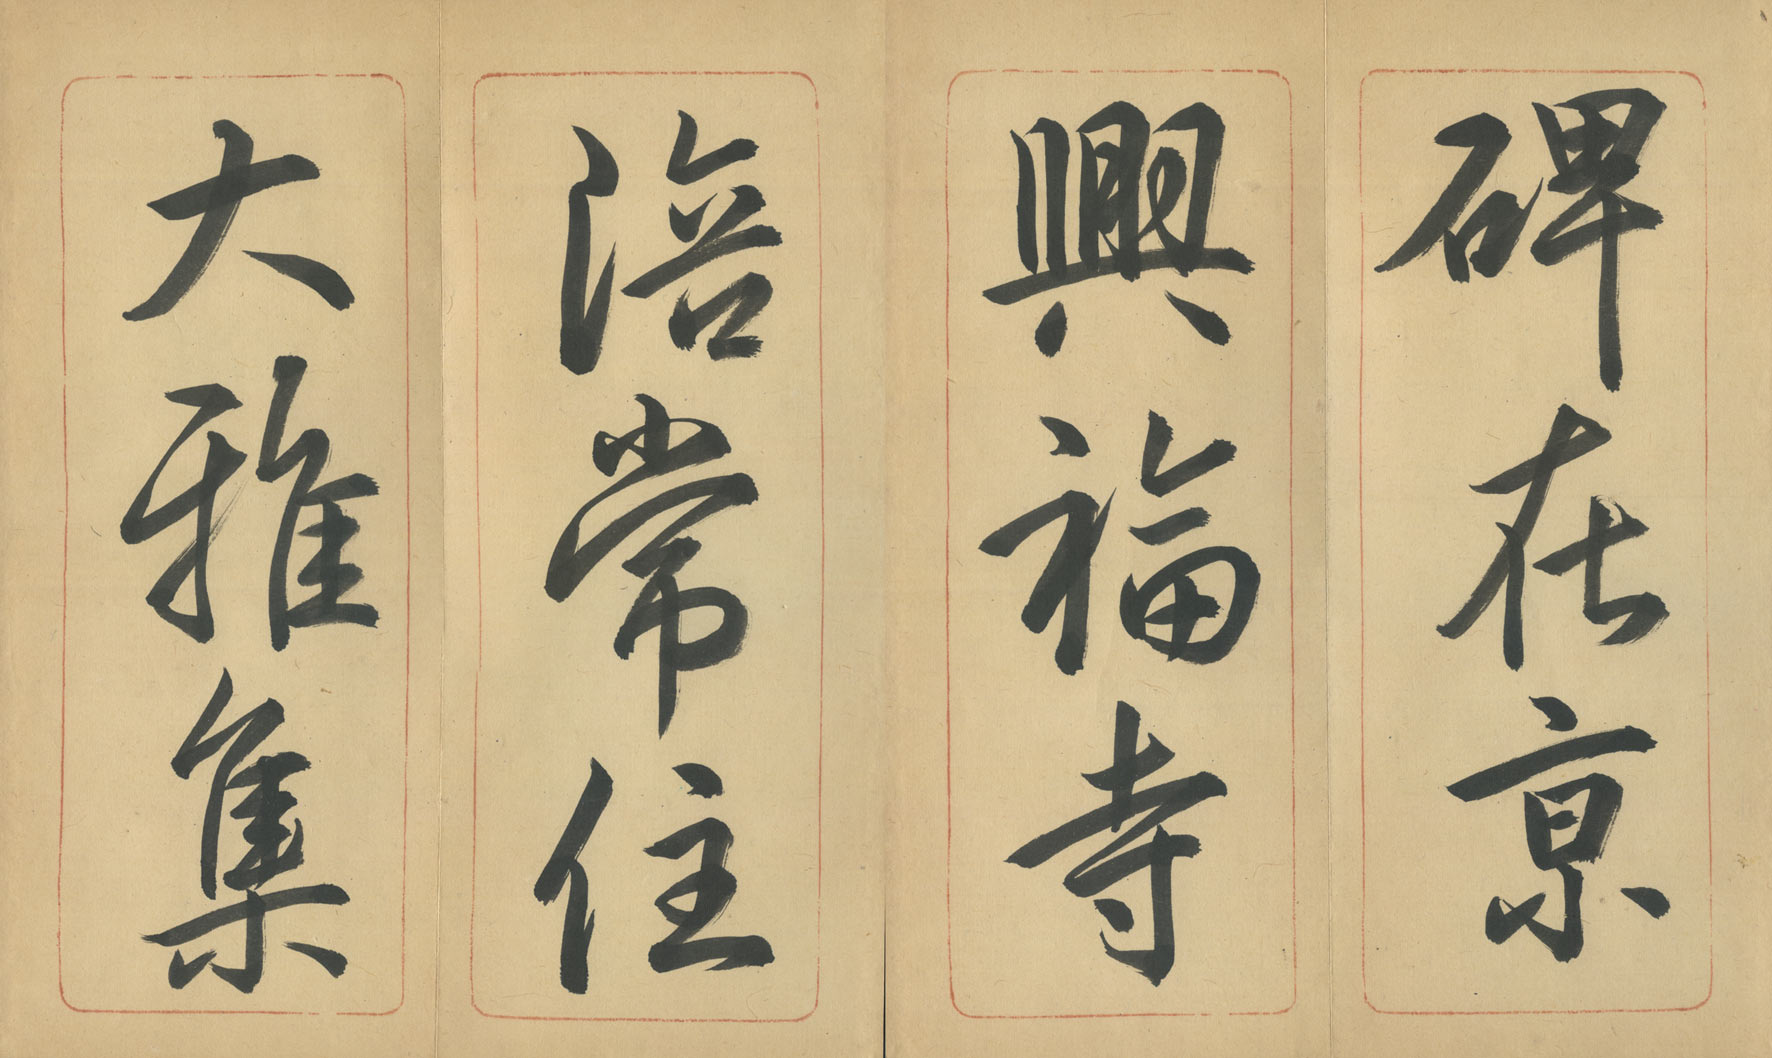 碑在京
興福寺
陪常住
大雅集